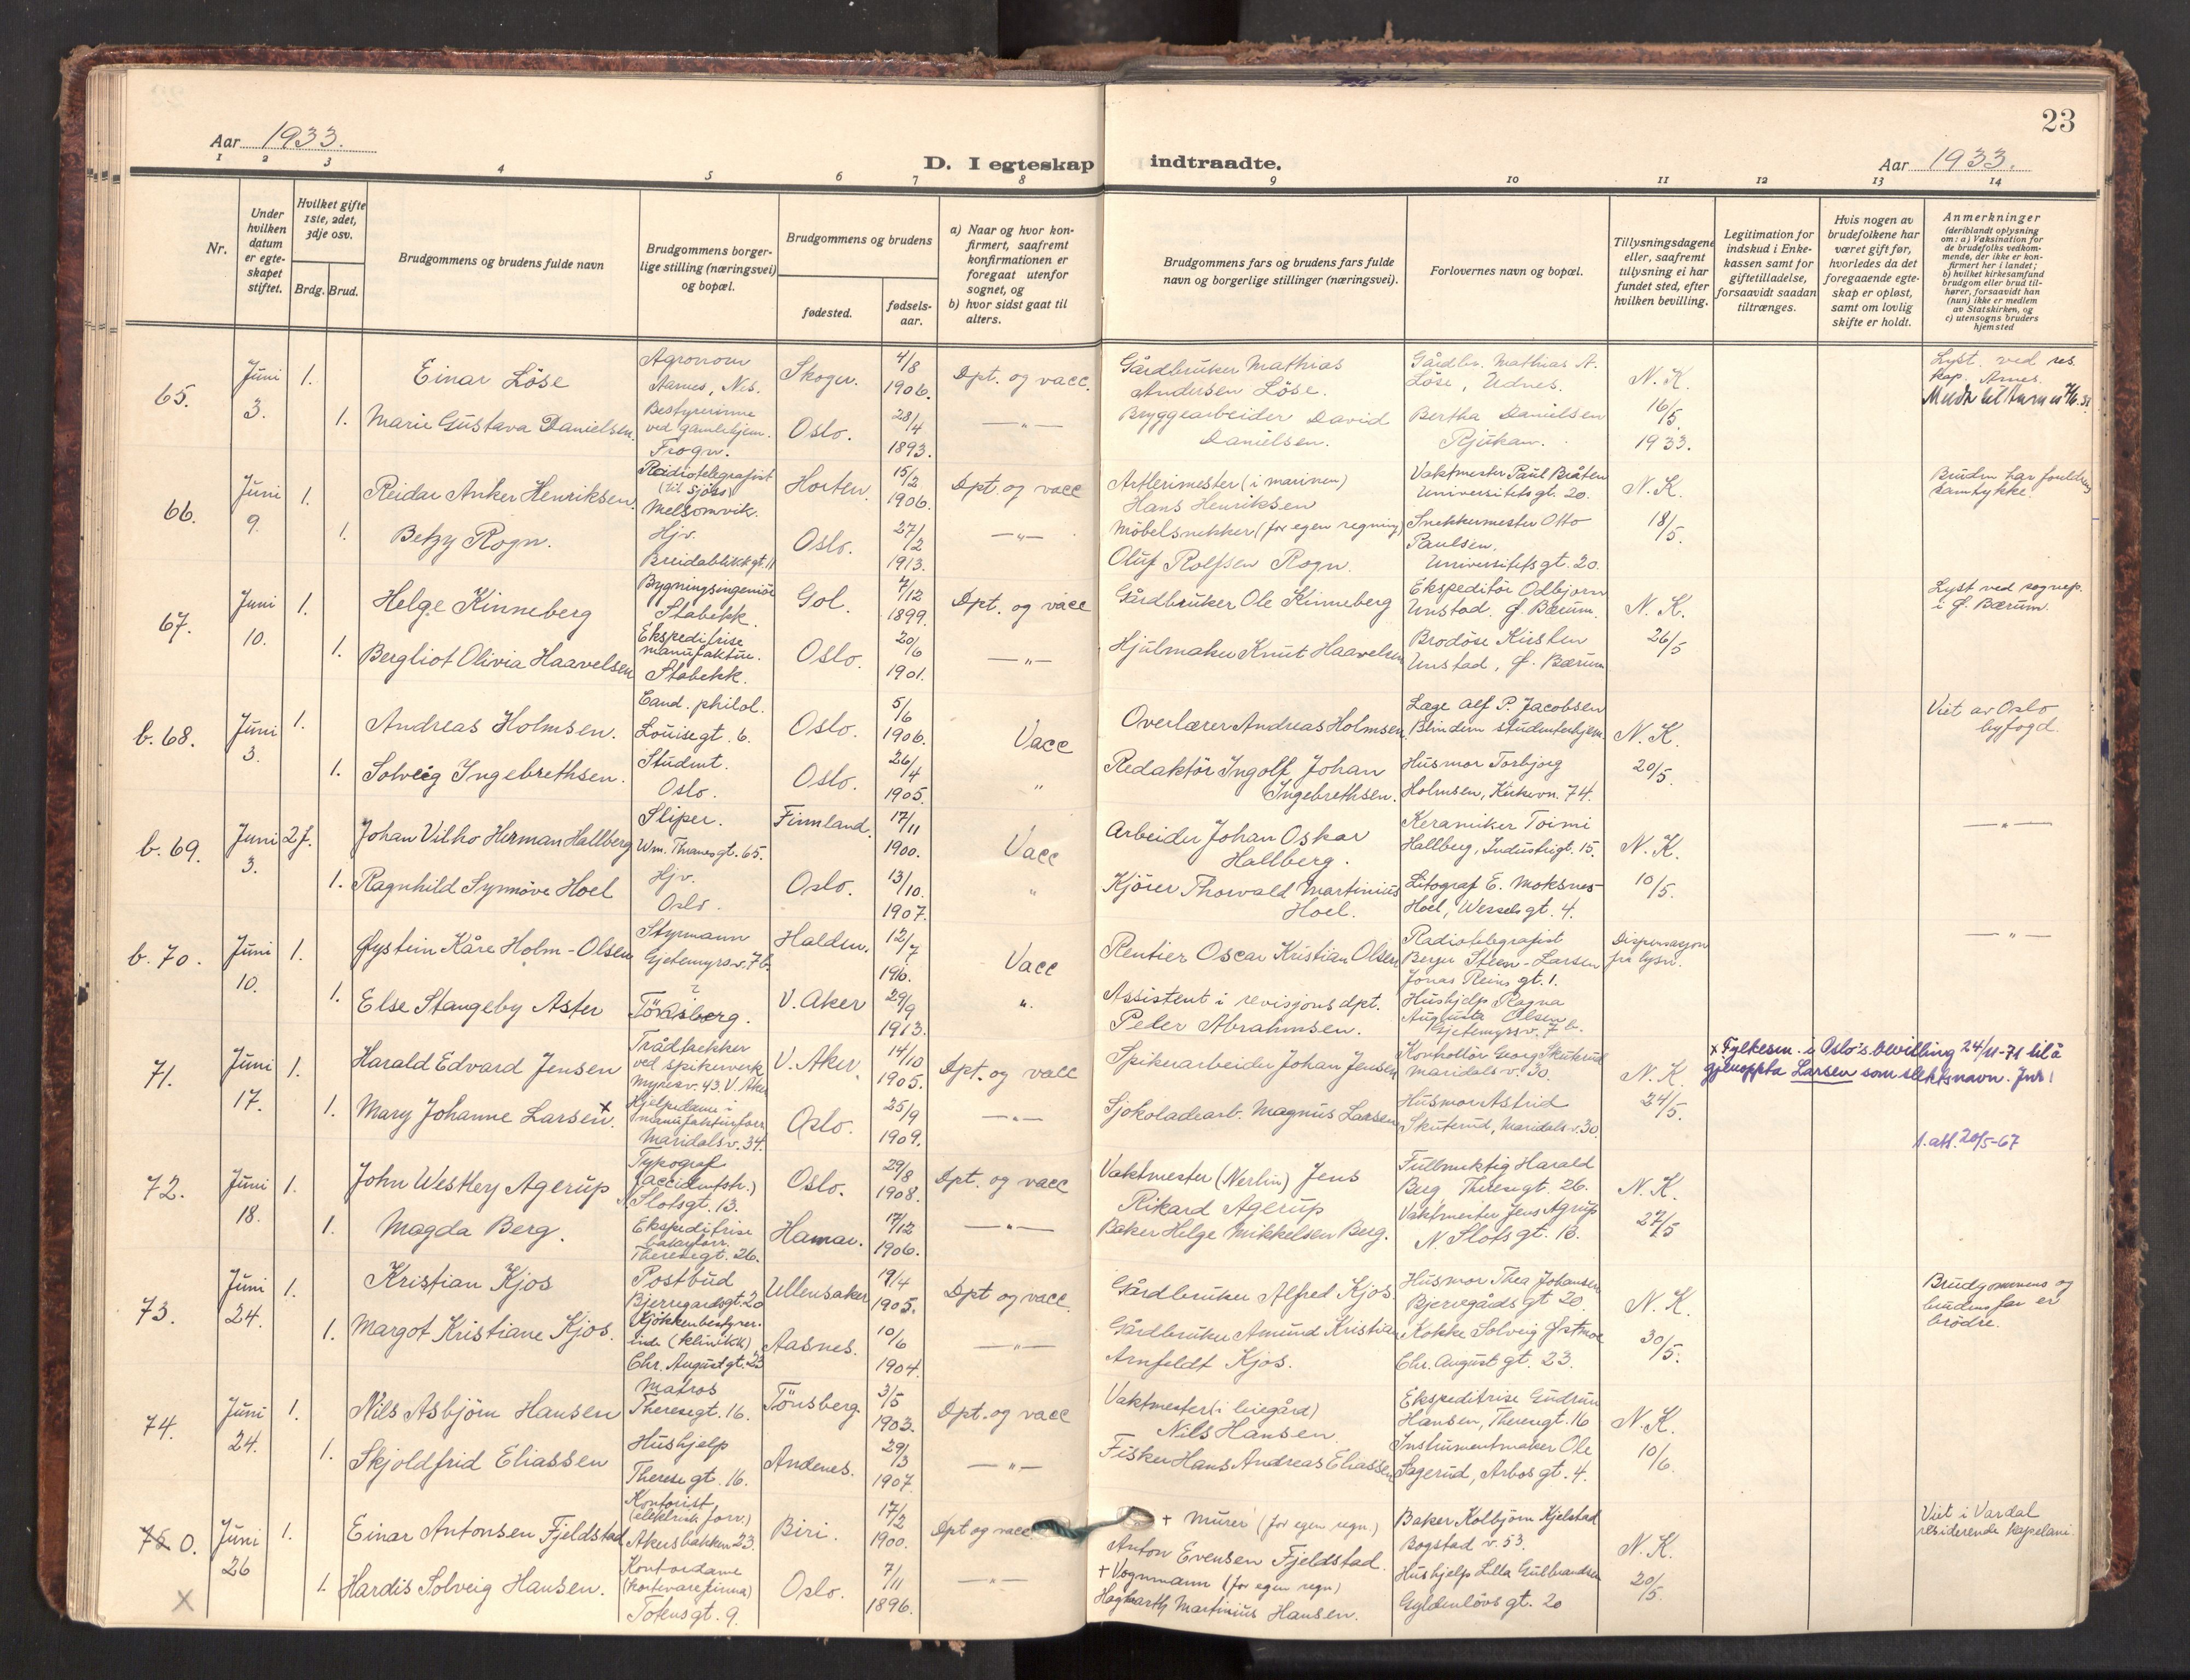 23
Aar 1933.
D. I egteskap indtraadte.
Aar 1933.
1 2 3 4 5 6 7 8 9 10 11 12 13 14
Nr.
Under hvilken datum er egteskapet stiftet.
Hvilket gifte 1ste, 2det, 3dje osv.
Brdg. Brud.
Brudgommens og brudens fulde navn
Brudgommens borgerlige stilling (næringsvei) og bopæl.
Brudgommens og brudens
fødested.
fødselsaar.
a) Naar og hvor konfirmert, saafremt konfirmationen er foregaat utenfor sognet, og
b) hvor sidst gaat til alters.
Brudgommens fars og brudens fars fulde navn og borgerlige stillinger (næringsvei).
Forlovernes navn og bopæl.
Tillysningsdagene eller, saafremt tillysning ei har fundet sted, efter hvilken bevilling.
Legitimation for indskud i Enkekassen samt for giftetilladelse, forsaavidt saadan tiltrænges.
Hvis nogen av brudefolkene har været gift før, hvorledes da det foregaaende egteskap er opløst, samt om lovlig skifte er holdt.
Anmerkninger
(deriblandt oplysning om: a) Vaksination for de brudefolks vedkommende, der ikke er konfirmert her i landet;
b) hvilket kirkesamfund brudgom eller brud tilhører, forsaavidt han (hun) ikke er medlem av Statskirken, og
c) utensogns bruders hjemsted
65. Juni 3. 1. Einar Löse Agronom Aarnes, Nes. Skoger. 4/8 1906. Dpt. og vacc. Gårdbruker Mathias Andersen Löse. Gårdbr. Mathias A. Löse, Udnes. N. K. 16/5 1933. Lyst. ved res. kap. Arnes.
1. Marie Gustava Danielsen. Bestyrerinne ved gamlehjem. Frogn. Oslo. 28/4 1893. —"— Bryggearbeider David Danielsen. Bertha Danielsen Rjukan.
66. Juni 9. 1. Reidar Anker Henriksen. Radiotelegrafist (til sjöes) Melsomvik. Horten. 15/2 1906. Dpt. og vacc Artlerimester (i marinen) Hans Henriksen Vaktmester Paul Bråten Universitets gt. 20. N. K. 18/5. Bruden har foreldres samtykke.
1. Betzy Rogn. Hjv. Breidablikkgt. 11 Oslo. 27/2 1913. —"— Möbelsnekker (for egen regning) Oluf Rolfsen Rogn. Snekkermester Otto Paulsen. Universitetsgt. 20.
67. Juni 10. 1. Helge Kinneberg Bygningsingeniör Stabekk. Gol. 7/12 1899. Dpt. og vacc Gårdbruker Ole Kinneberg Ekspeditör Odbjorn Unstad. Ø. Bærum. N. K. 26/5 Lyst ved sognep. i Ø. Bærum.
1. Bergliot Olivia Haavelsen Ekspeditrise manufaktur. Stabekk. Oslo. 20/6 1901. —"— Hjulmaker Knut Haavelsen Brodöse Kirsten Unstad, Ø. Bærum
b. 68. Juni 3. 1. Andreas Holmsen. Cand. philol. Louisegt. 6. Oslo. 5/6 1906. Vacc Overlærer Andreas Holmsen. Læge Alf P. Jacobsen Blindern studenterhjem. N. K. 20/5. Viet av Oslo byfogd.
1. Solveig Ingebrethsen. Student. Oslo. Oslo. 26/4 1905. " Redaktör Ingolf Johan Ingebrethsen. Husmor Torbjorg Holmsen, Kirkevn. 74.
b. 69. Juni 3. 2 f. Johan Vilho Herman Hallberg Sliper. Wm. Thranesgt. 65. Finnland. 17/11 1900. Vacc Arbeider Johan Oskar Hallberg. Keramiker Toimi Hallberg, Industrigt. 15. N. K. 10/5. —"—
1. Ragnhild Synnöve Hoel Hjv. Oslo. Oslo. 13/10. 1907. " Kjörer Thorvald Martinius Hoel. Litograf E. Moksnes Hoel, Wesselsgt. 4.
b. 70. Juni 10. 1. Øystein Kåre Holm-Olsen Styrmann Gjetemyrsv. 7b. Halden. 12/7 Vacc Rentier Oscar Kristian Olsen Radiotelegrafist Berger Steen-Larsen Jonas Reins gt. 1. Dispensasjon fra lysn. —"—
1. Else Stangeby Aster ? Tönsberg. V. Aker 29/9 1913. " Assistent i revisjonsdpt. Peder Abrahmsen. Hushjelp Ragna Augusta Olsen Gjetemyrsv. 7b.
71. Juni 17. 1. Harald Edvard Jensen Trådtrekker ved spikerverk Myrerv. 43. V. Aker V. Aker. 14/10 1905. Dpt. og vacc Spikerarbeider Johan Jensen Kontrollör Georg Skuterud Maridalsv. 30. N. K. 24/5. x Fylkesm. i Oslo's bevilling 24/11-71 til å gjenoppta Larsen som slektsnavn.
1. Mary Johanne Larsen. x Hjelpedame i manufakturforr. Maridalsv. 34. Oslo. 25/9 1909. —"— Sjokoladearb. Magnus Larsen Husmor Astrid Skuterud, Maridalsv. 30. 1. att. 20/5-67
72. Juni 18. 1. John Westley Agerup Typograf (accidentstr.) N. Slotsgt. 13. Oslo. 29/8 1908. Dpt. og vacc Vaktmester (Nerlin) Jens Rikard Agerup Fullmektig Harald Berg, Theresegt. 26. N. K. 27/5
1. Magda Berg. Ekspeditrise bakeriforr. Theresegt. 26. Hamar. 17/12 1906. —"— Baker Helge Mikkelsen Berg. Vaktmester Jens Agrup N. Slotsgt. 13.
73. Juni 24. 1. Kristian Kjos Postbud Bjerregardsgt. 20 Ullensaker 19/4 1905. Dpt og vacc. Gårdbruker Alfred Kjos. Husmor Thea Johansen Bjerregårdsgt 20. N. K. 30/5. Brudgommens og brudens far er brödre.
1. Margot Kristiane Kjos. Kjökkenbestyrerinde (klinikk) Chr. Augustgt. 23 Aasnes. 10/6 1904. —"— Gårdbruker Amund Kristian Arnfeldt Kjos. Kokke Solveig Østmoe Chr. August gt. 23.
74. Juni 24. 1. Nils Asbjörn Hansen Matros Theresegt. 16. Tönsberg. 3/5 1903. Dpt. og vacc Vaktmester (i leiegård) Nils Hansen. Ekspeditrise Gudrun Hansen, Theresegt. 16 N. K. 10/6.
1. Skjoldfrid Eliassen Hushjelp Therese gt. 16. Andenes. 29/3 1907. —"— Fisker Hans Andreas Eliassen Instrumentmaker Ole Sagerud, Arbos gt. 4.
75 0. Juni 26 1. Einar Antonsen Fjeldstad Kontorist (elektrisk forr.) Akersbakken 23. Biri. 17/2 1900. Dpt og vacc + Murer (for egen regn.) Anton Evensen Fjeldstad. Baker Kolbjörn Kjelstad Bogstad v. 53. N. K. 20/5. Viet i Vardal residerende kapelani.
X 1. Hardis Solveig Hansen. Kontordame (kortevarefirma) Totensgt. 9. Oslo. 7/11 1896. —"— + Vognmann (for egen regn) Hagbarth Martinius Hansen. Hushjelp Lilla Gulbrandsen Gyldenlövsgt. 20